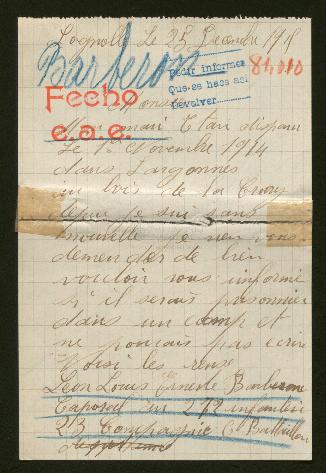 Le 28 Decembre 1915
Barberon
Pedir informes
Que se hace asi
Devolver
81,010
Fecho
e.a.e.
Monsieur
Mon mari Etan disparu
Le 1er Novembre 1914
dans Largonnes
au bois de la Grury
depui je sui sans
nouvelle je vien vous
demender de bien
vouloir vous informé
si il serais prisonnier
dans un camp et
ne pourais pas ecrire
Voisi les
Léon Louis Erneste Barberon
Caporal au 272 infanterie
23 Compagnie 6 Battaillon